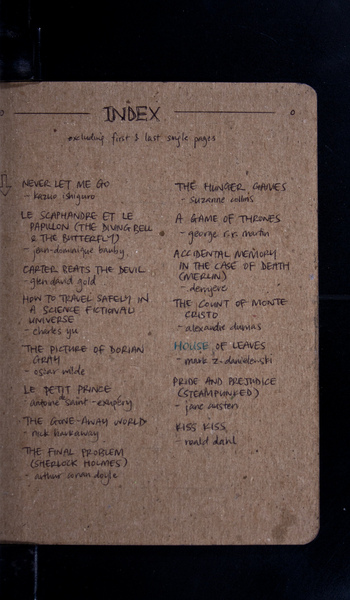 INDEX
excluding first & last single pages
NEVER LET ME GO
- kazuo ishiguro
LE SCAPHANDRE ET LE
PAPILLON (THE DIVING BELL
& THE BUTTERFLY)
- jean-dominique bauby
CARTER BEATS THE DEVIL
- glen david gold
HOW TO TRAVEL SAFELY IN
A SCIENCE FICTIONAL
UNIVERSE
- charles yu
THE PICTURE OF DORIAN
GRAY
- oscar wilde
LE PETIT PRINCE
- antoine saint-exupéry
THE GONE-AWAY WORLD
- nick harkaway
THE FINAL PROBLEM
(SHERLOCK HOLMES)
- arthur conan doyle
THE HUNGER GAMES
- suzanne collins
A GAME OF THRONES
- george r.r. martin
ACCIDENTAL MEMORY
IN THE CASE OF DEATH
(MERLIN)
THE COUNT OF MONTE
CRISTO
- alexandre dumas
HOUSE OF LEAVES
- mark z. danielewski
PRIDE AND PREJUDICE
(STEAMPUNKED)
- jane austen
KISS KISS
- roald dahl